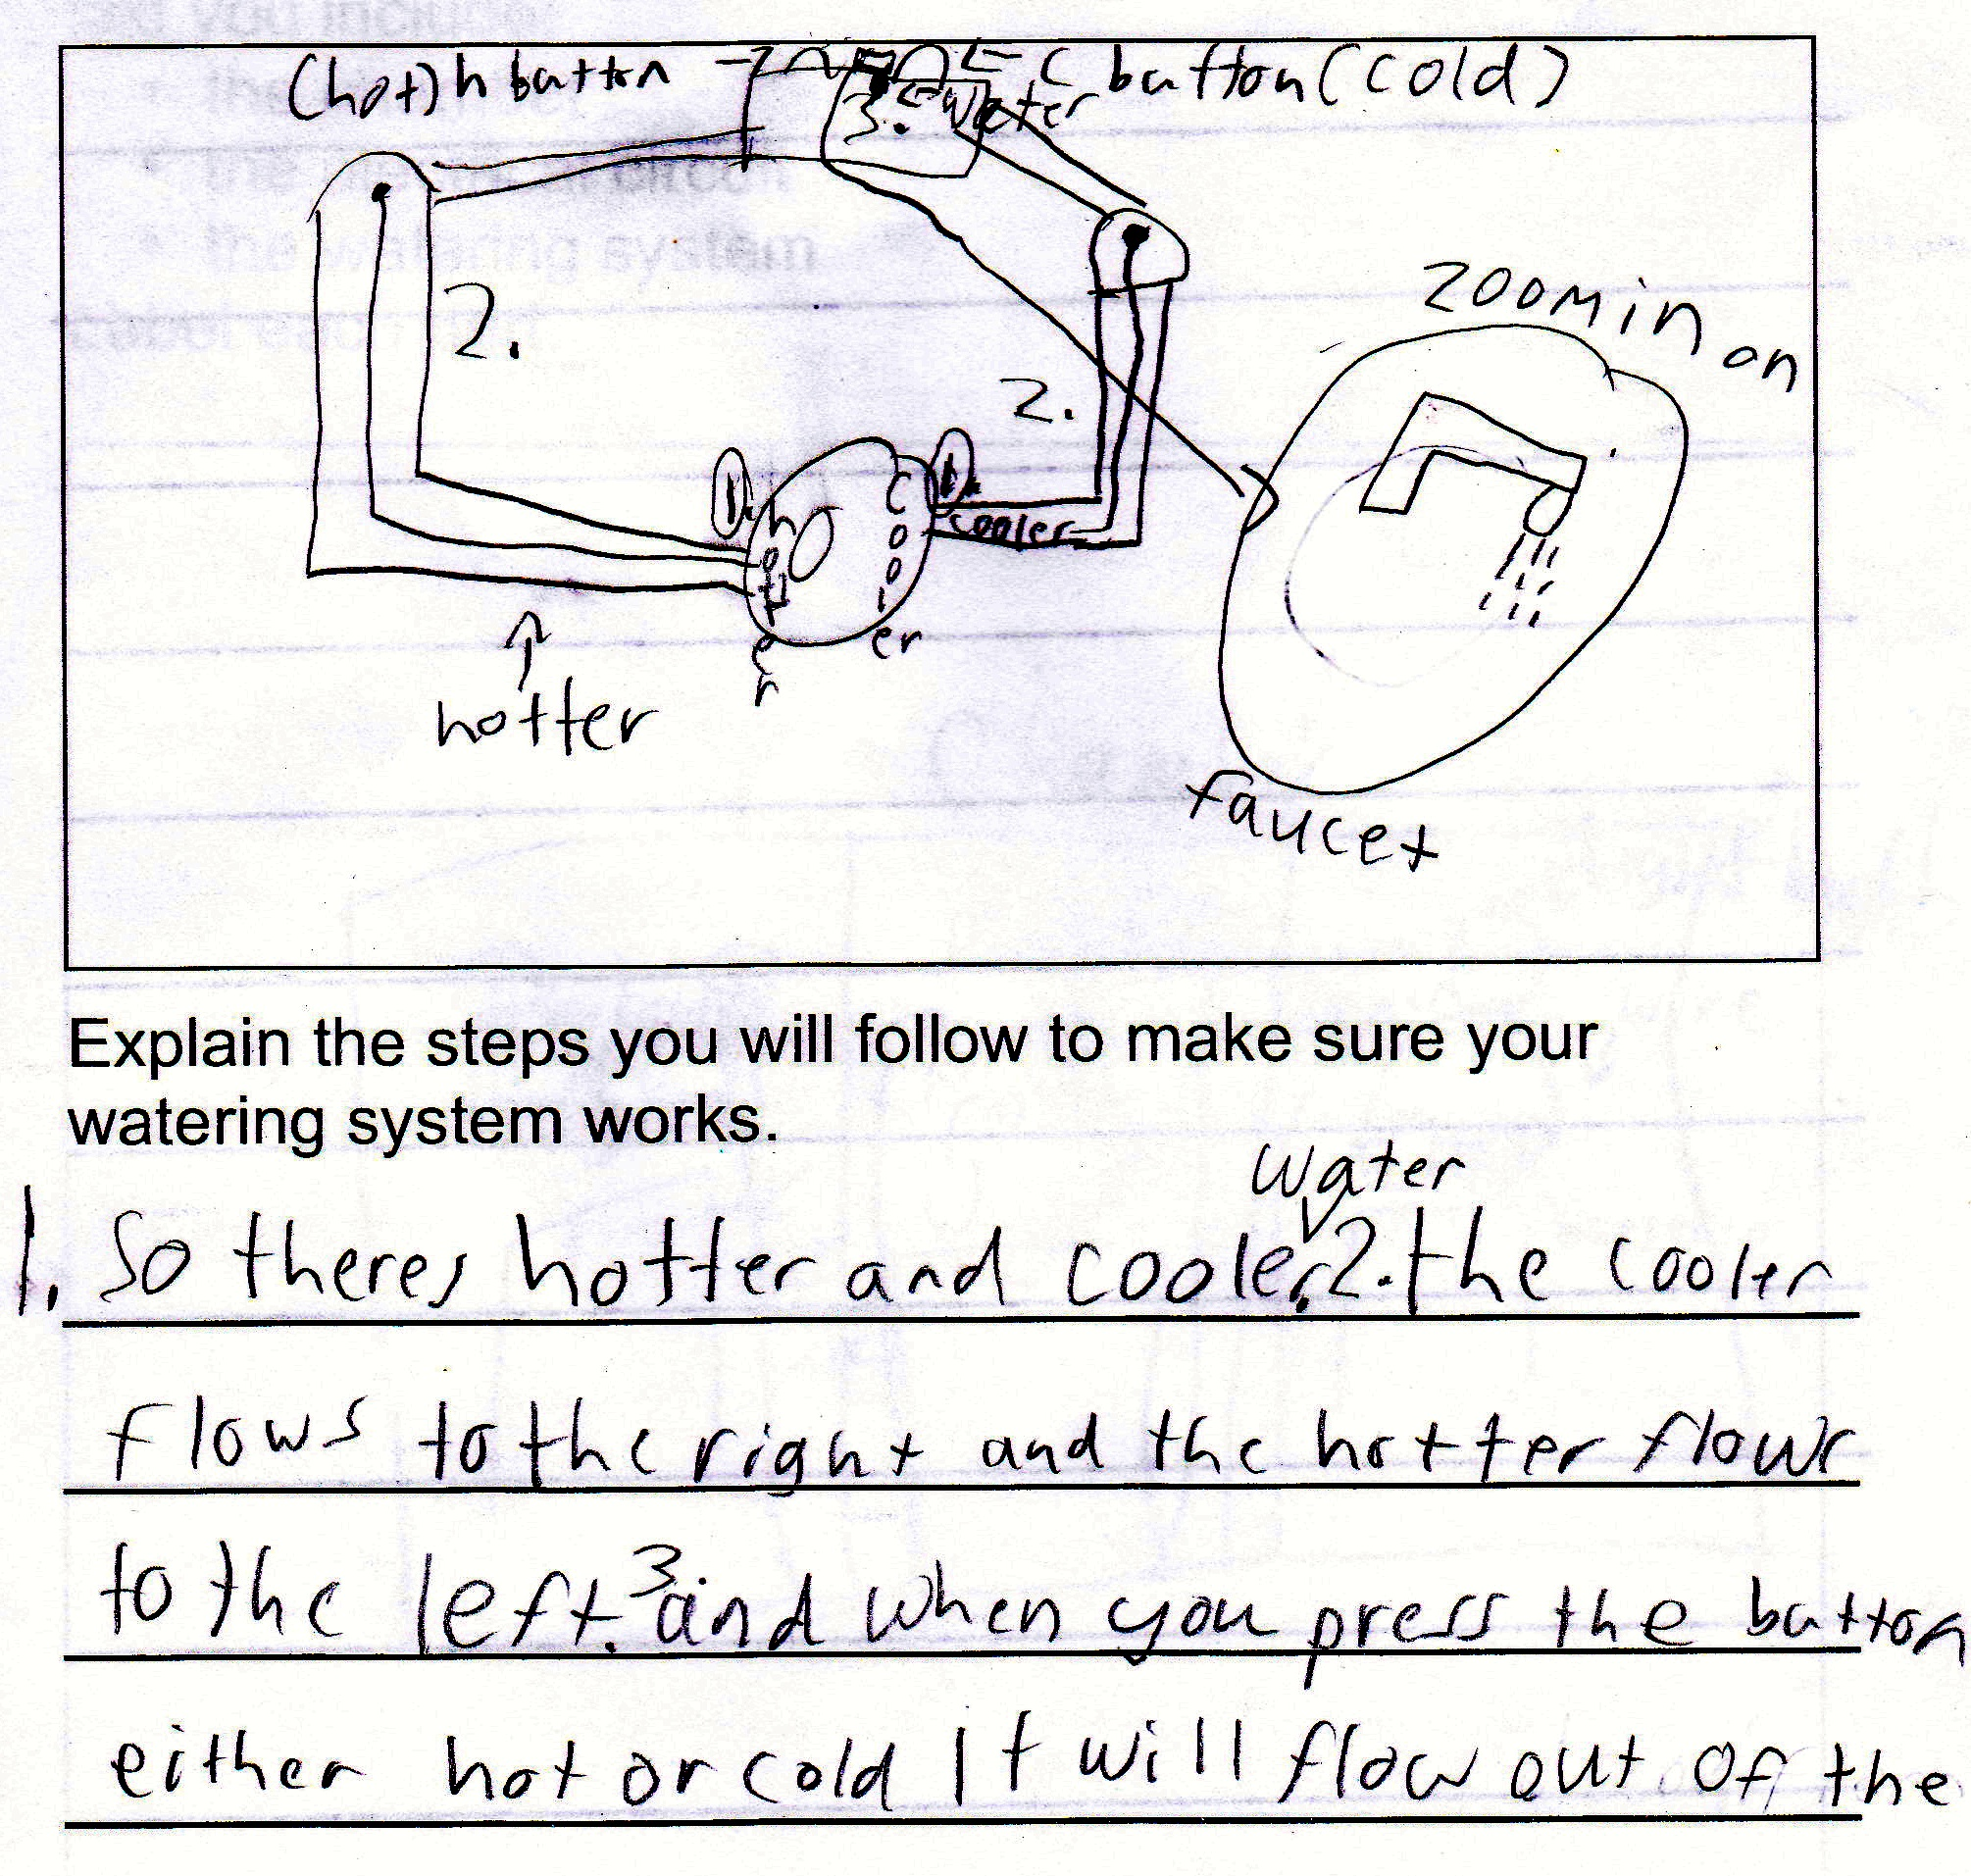 (hot) h button → ← c button (cold)
3. water
2.
zoom in on
2.
1.
hotter
cooler
1.
cooler
hotter
faucet
Explain the steps you will follow to make sure your
watering system works.
water
1. So theres hotter and cooler. 2. the cooler
flows to the right and the hotter flows
to the left. 3 and when you press the button
either hot or cold It will flow out of the